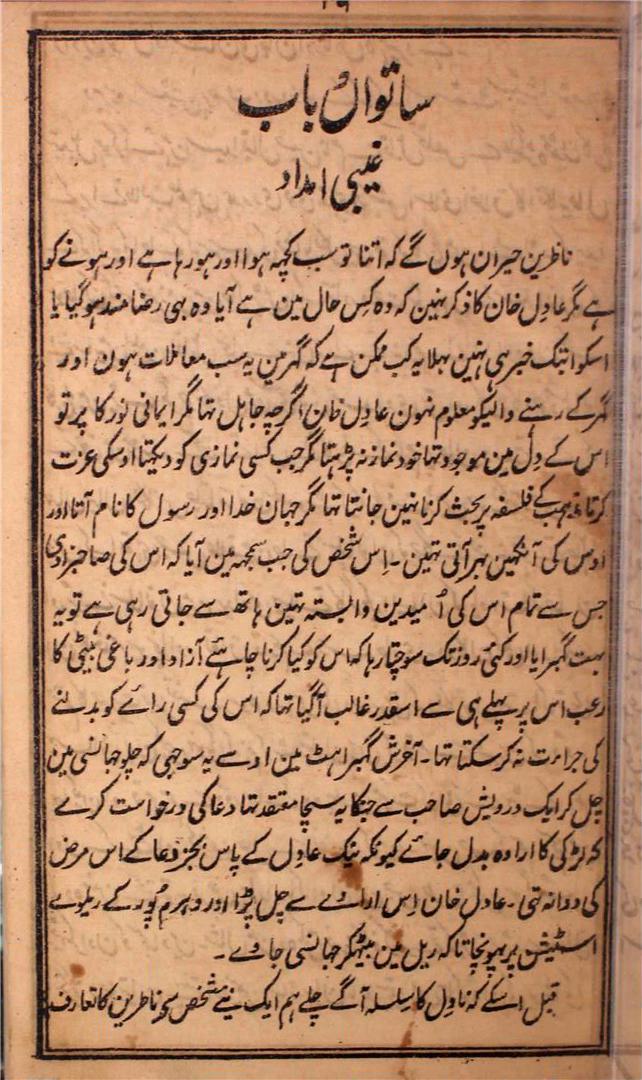 ساتواں باب
غیبی امداد
ناظرین حیران ہوں گے کہ اتنا تو سب کچہہ ہوا اور ہو رہا ہے اور ہونے کو
ہے مگر عادل خان کا ذکر نہین کہ وہ کِس حال مین ہے آیا وہ بہی رضا مند ہو گیا یا
اسکو ابتک خبر ہی نہین بہلا یہ کب ممکن ہے کہ گہر مین یہ سب معاملات ہون اور
گہر کے رہنے والیکو معلوم نہون عادل خان اگرچہ جاہل تہا مگر ایمانی نور کا پرتو
اس کے دل مین موجود تہا خود نماز نہ پڑہتا مگر جب کسی نمازی کو دیکہتا اوسکی عزت
کرتا مذہب کے فلسفہ پر بحث کرنا نہین جانتا تہا مگر جہان خدا اور رسول کا نام آتا اور
اوس کی آنکہین بہر آتی تہین ۔ اِس شخص کی جب سمجہہ مین آیا کہ اس کی صاحبزادی
جس سے تمام اس کی اُمیدین وابستہ تہین ہاتھ سے جاتی رہی ہے تو یہ
بہت گہبرایا اور کئی روز تک سوچتا رہا کہ اس کو کیا کرنا چاہئے آزاد اور باغی بیٹی کا
رعب اس پر پہلے ہی سے اسقدر غالب آگیا تہا کہ اس کی کسی رائے کو بدلنے
کی جراءت نہ کر سکتا تہا ۔ آخرش گہبراہٹ مین اوسے یہ سوجہی کہ چلو جہانسی مین
چل کر ایک درویش صاحب سے جنکا یہ سچا معتقد تہا دعا کی درخواست کرے
کہ لڑکی کا ارادہ بدل جائے کیونکہ نیک عادل کے پاس بجز دعا کے اس مرض
کی دوا نہ تہی ۔ عادل خان اِس ارادے سے چل پڑا اور ویرم پور کے ریلوے
اسٹیشن پر پہونچا تاکہ ریل مین بیٹہکر جہانسی جاوے ۔
قبل اسکے کہ ناول کا سلسلہ آگے چلے ہم ایک نئے شخص سے ناظرین کا تعارف